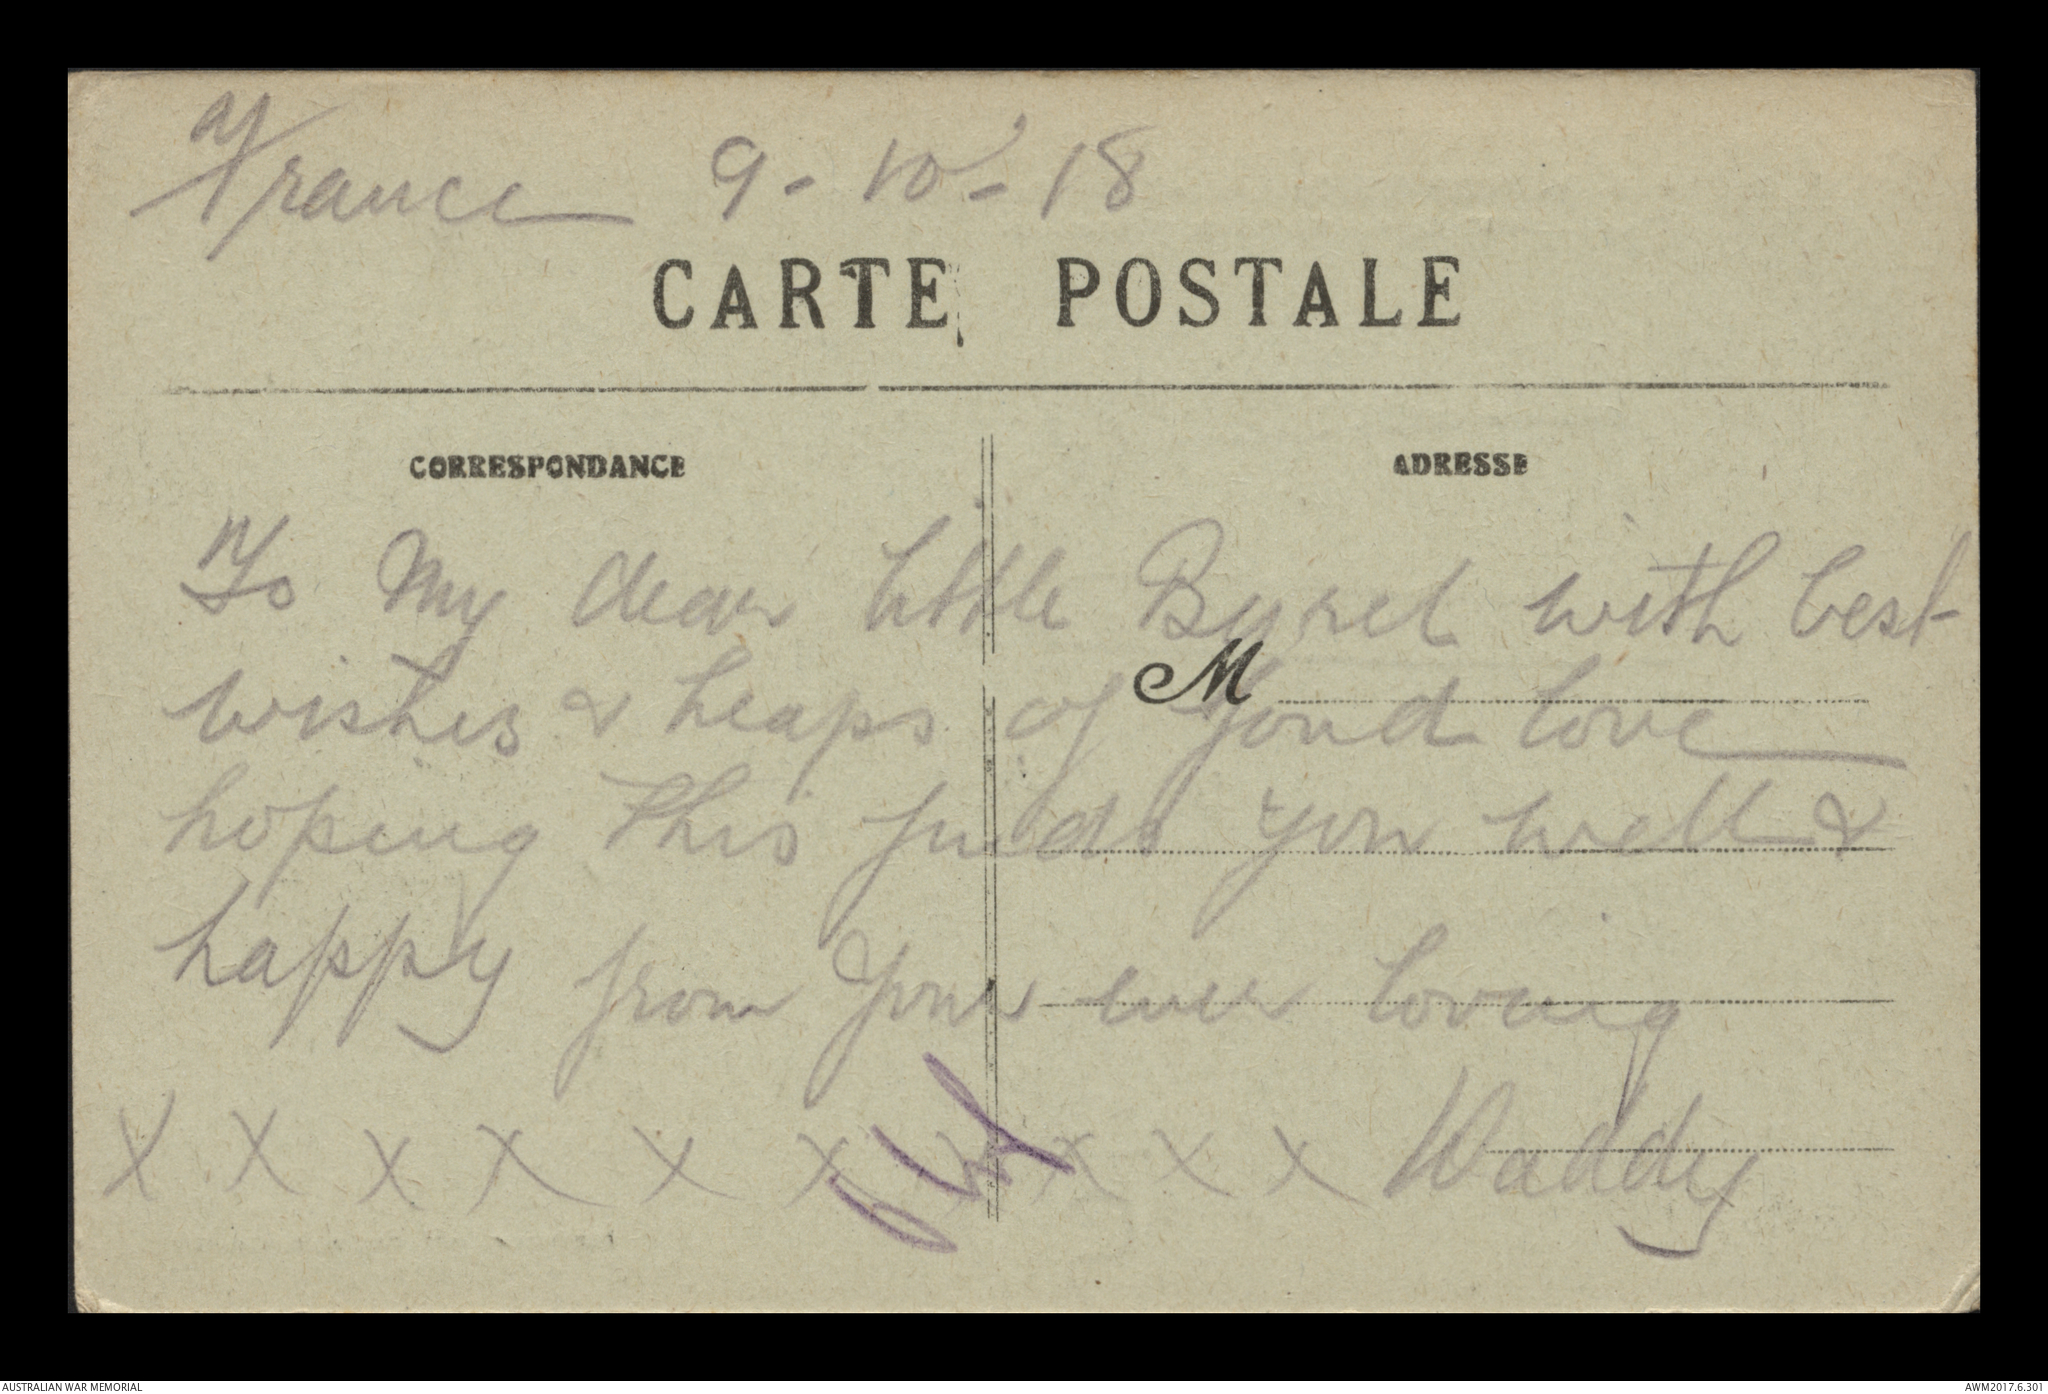 France 9-10-18
CARTE POSTALE
CORRESPONDANCE
ADRESSE
To My dear little Byrel with best
wishes & heaps of fond love
M
hoping this finds you well &
happy from your ever loving
x x x x x x x x x x Daddy
AUSTRALIAN WAR MEMORIAL
AWM2017.6.301